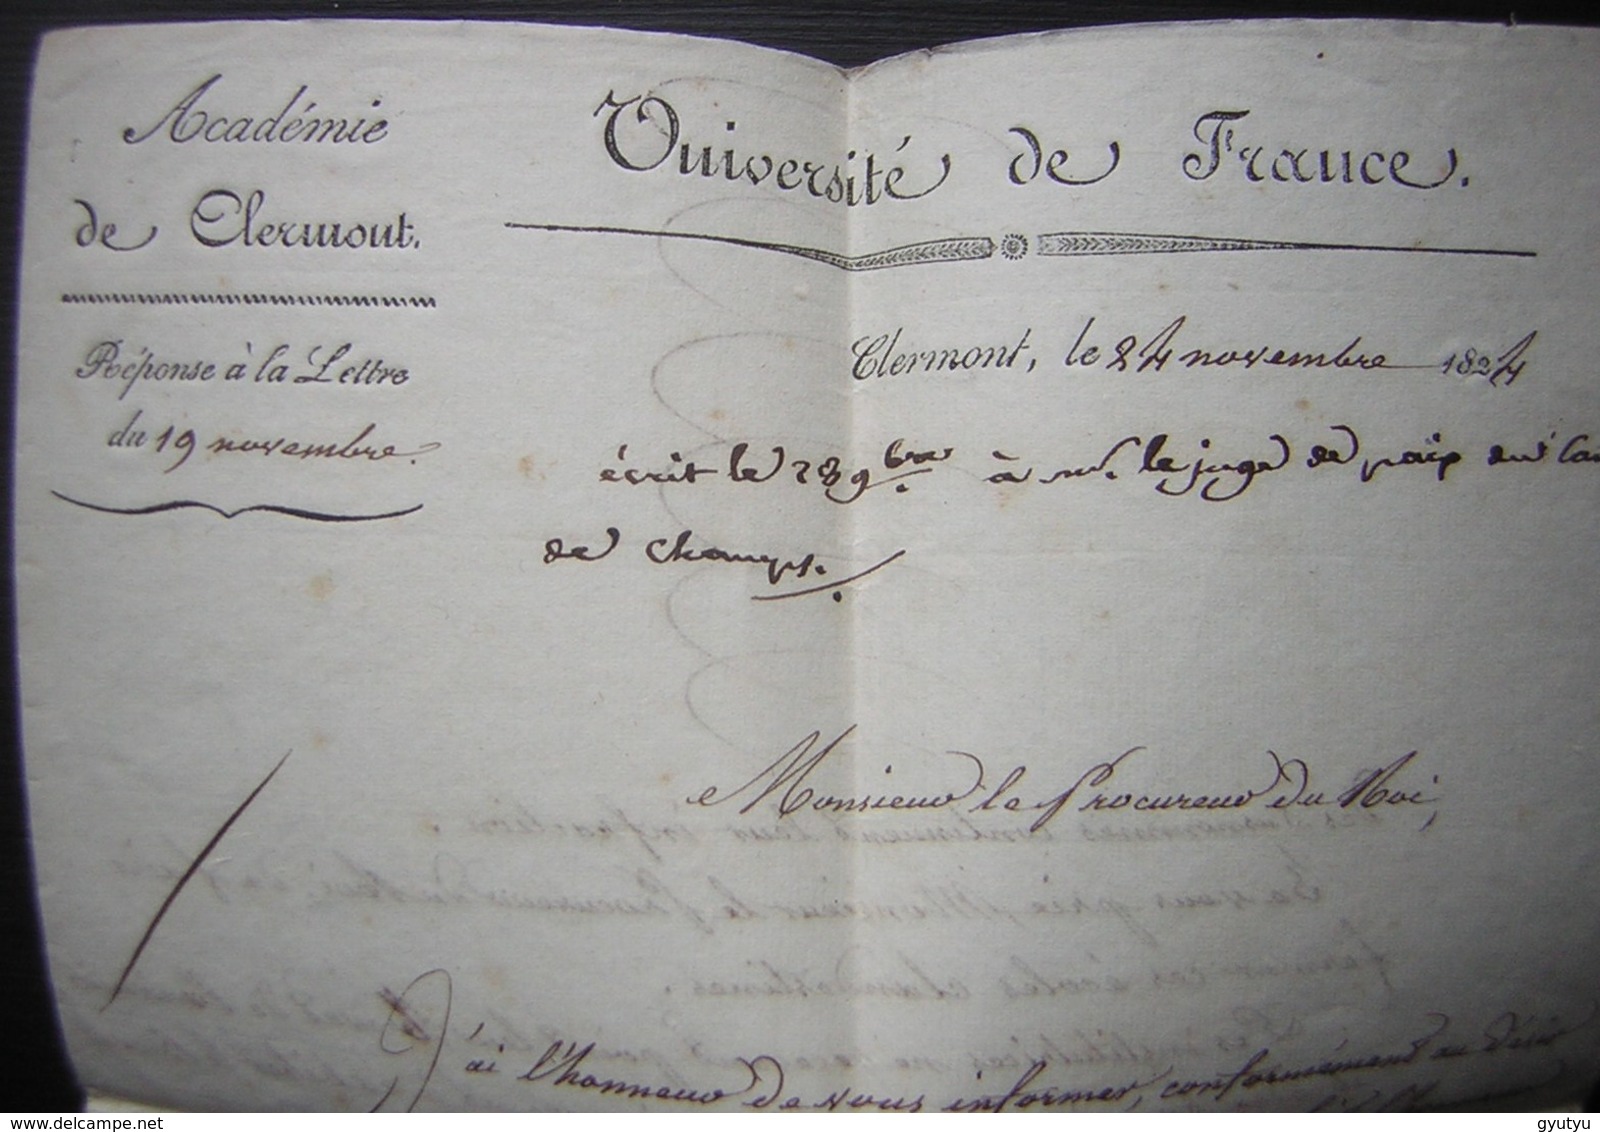 Académie
de Clermont.
Réponse à la Lettre
du 19 novembre.
Université de France.
Clermont, le 24 novembre 1824
écrit le 28 9bre à mr. le juge de paix du can
de Champs.
Monsieur le Procureur du Roi,
J'ai l'honneur de vous informer, conformément au désir
delcampe.net
gyutyu